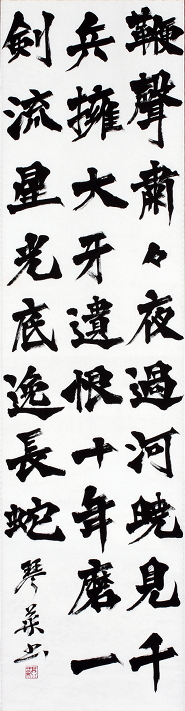 鞭聲肅々夜過河曉見千
兵擁大牙遺恨十年磨一
劍流星光底逸長蛇
琴葉书